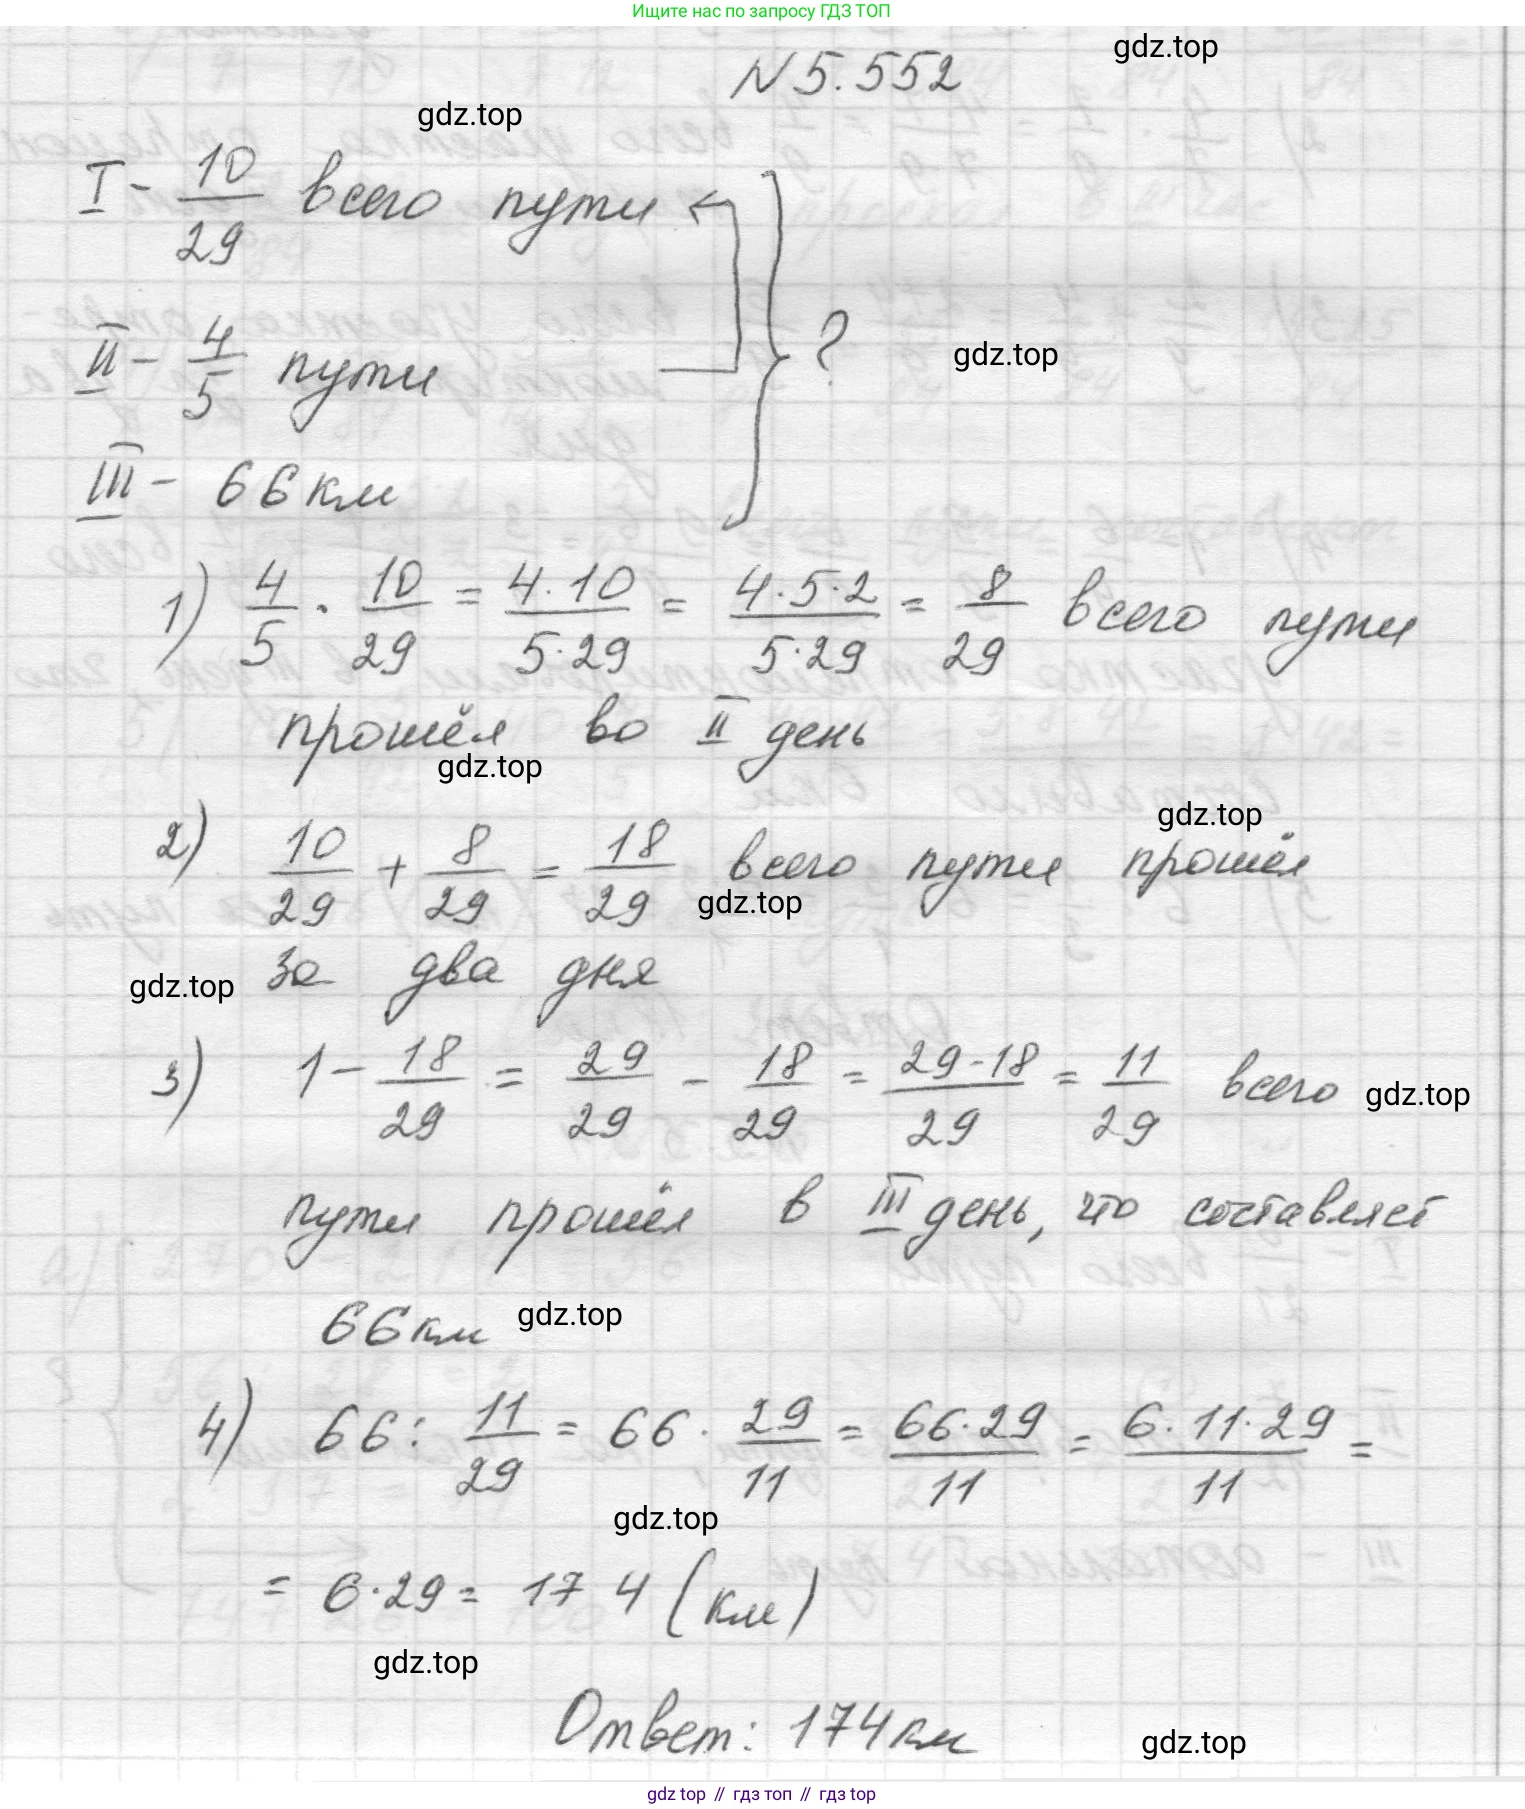 Ищите нас по запросу ГДЗ ТОП
gdz.top
N 5.552
gdz.top
I - 10/29 всего пути
II - 4/5 пути
} ?
gdz.top
III - 66 км
1) 4/5 · 10/29 = 4·10/5·29 = 4·5·2/5·29 = 8/29 всего пути
прошёл во II день
gdz.top
gdz.top
2) 10/29 + 8/29 = 18/29 всего пути прошёл
gdz.top
за два дня
gdz.top
3) 1 - 18/29 = 29/29 - 18/29 = 29-18/29 = 11/29 всего
gdz.top
пути прошёл в III день, что составляет
66 км
gdz.top
4) 66 : 11/29 = 66 · 29/11 = 66·29/11 = 6·11·29/11 =
gdz.top
= 6·29 = 174 (км)
gdz.top
Ответ: 174 км
gdz.top
gdz top // гдз топ // гдз top